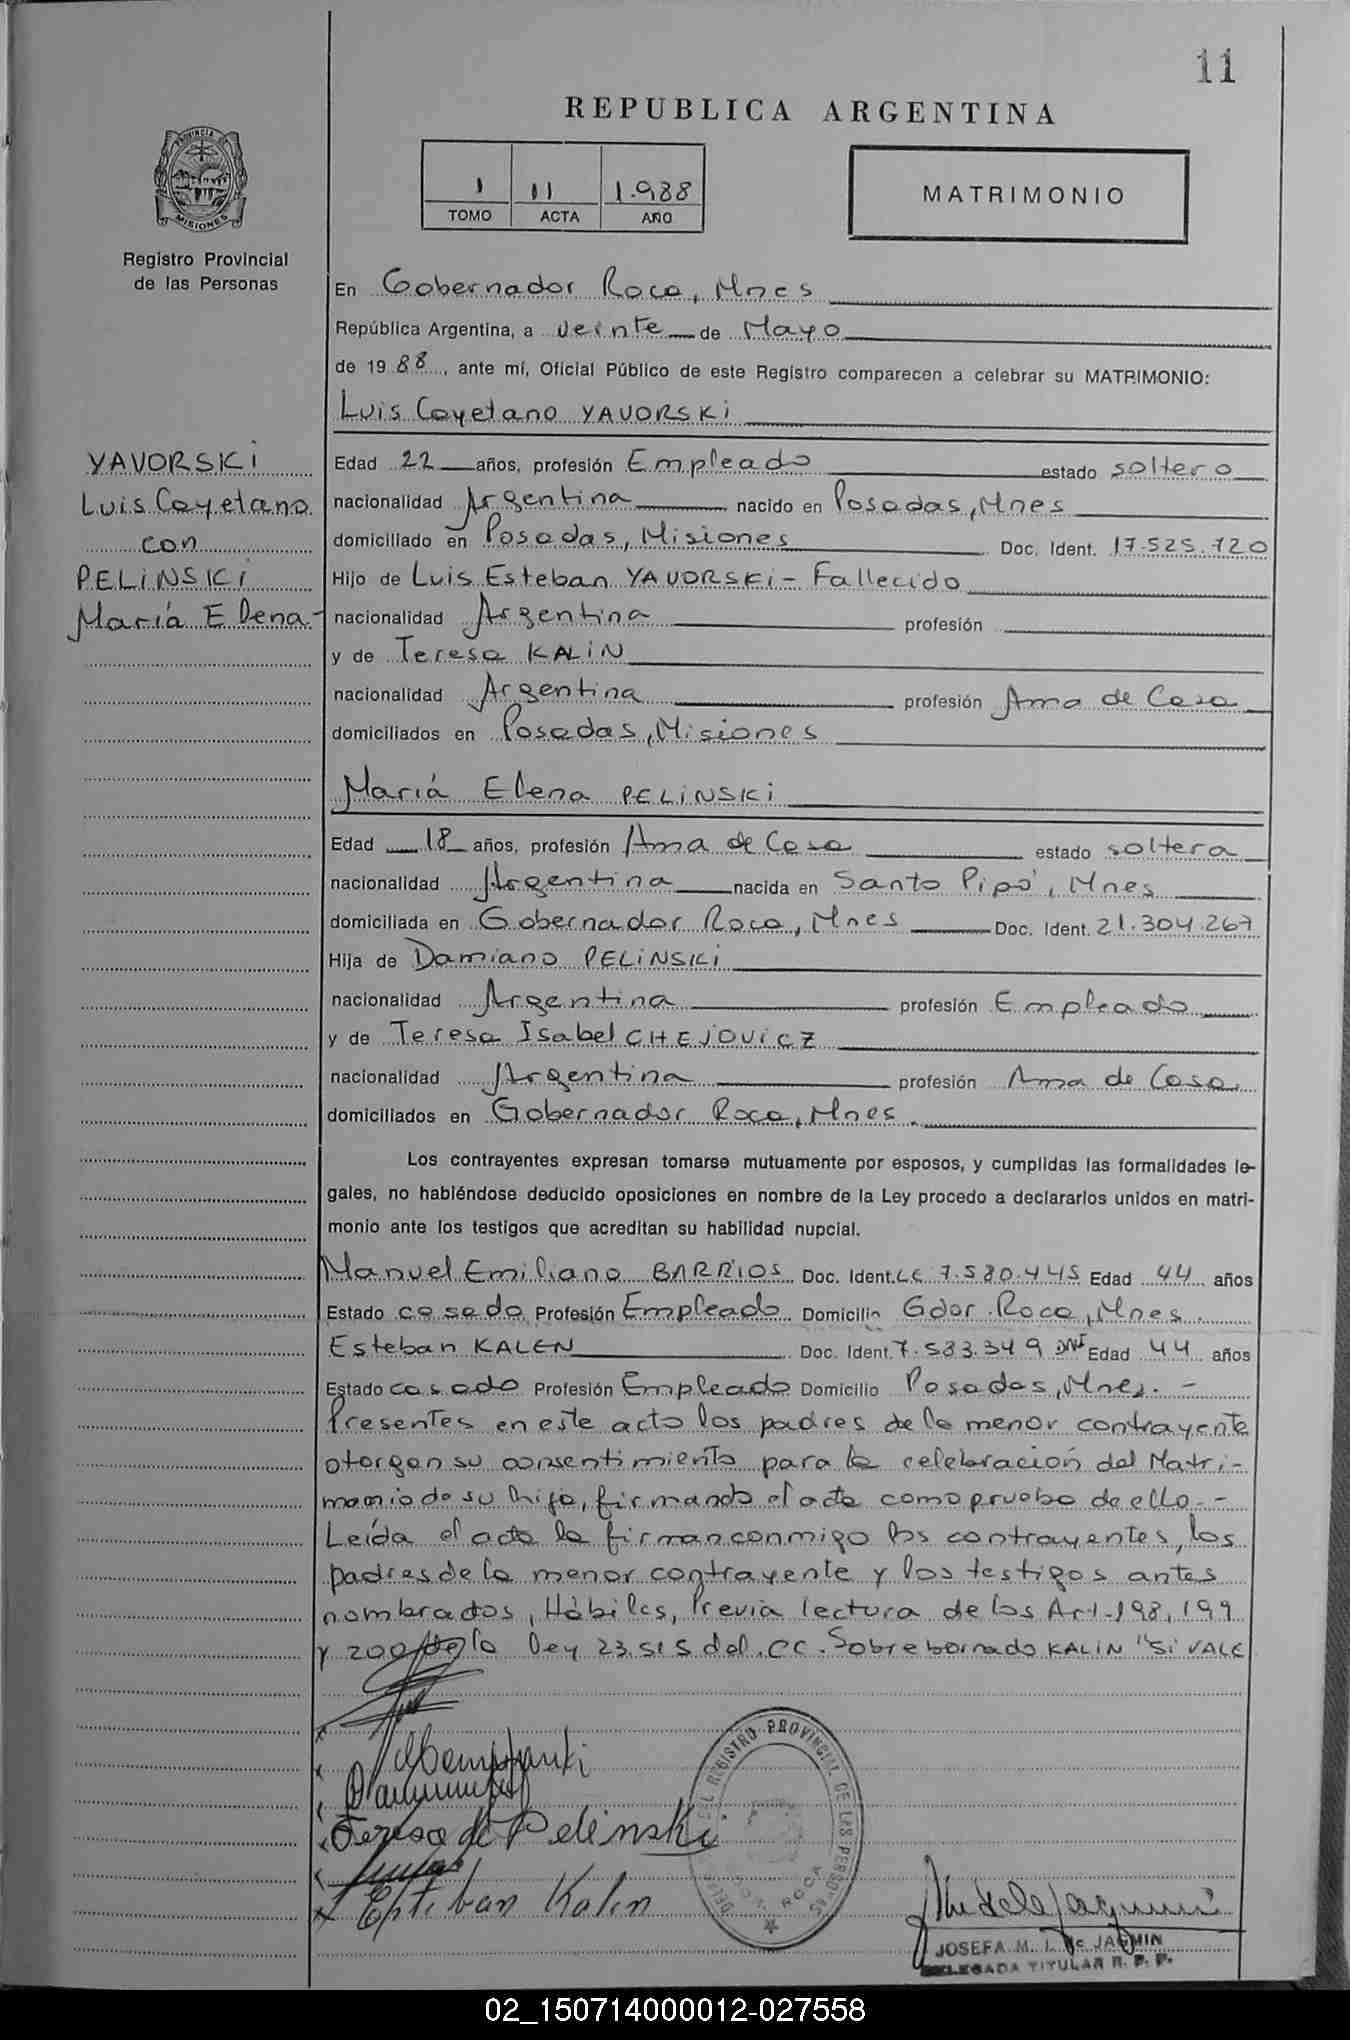 11
REPUBLICA ARGENTINA
1 11 1.988
TOMO ACTA AÑO
MATRIMONIO
PROVINCIA DE
MISIONES
Registro Provincial
de las Personas
En Gobernador Roca, Mnes
República Argentina, a veinte de Mayo
de 19 88, ante mí, Oficial Público de este Registro comparecen a celebrar su MATRIMONIO:
Luis Cayetano YAVORSKi
YAVORSKi
Luis Cayetano
con
PELiNSKi
María Elena-
Edad 22 años, profesión Empleado estado soltero
nacionalidad Argentina nacido en Posadas, Mnes
domiciliado en Posadas, Misiones Doc. Ident. 17.525.720
Hijo de Luis Esteban YAVORSKi - Fallecido
nacionalidad Argentina profesión
y de Teresa KALiN
nacionalidad Argentina profesión Ama de Casa
domiciliados en Posadas, Misiones
Mariá Elena PELiNSKi
Edad 18 años, profesión Ama de Casa estado soltera
nacionalidad Argentina nacida en Santo Pipó, Mnes
domiciliada en Gobernador Roca, Mnes Doc. Ident. 21.304.267
Hija de Damiano PELiNSKi
nacionalidad Argentina profesión Empleado
y de Teresa Isabel CHEJOViCZ
nacionalidad Argentina profesión Ama de Casa
domiciliados en Gobernador Roca, Mnes.
Los contrayentes expresan tomarse mutuamente por esposos, y cumplidas las formalidades le-
gales, no habiéndose deducido oposiciones en nombre de la Ley procedo a declararlos unidos en matri-
monio ante los testigos que acreditan su habilidad nupcial.
Manuel Emiliano BARRIOS Doc. Ident. LE 7.580.445 Edad 44 años
Estado casado Profesión Empleado Domicilio Gdor. Roca, Mnes.
Esteban KALEN Doc. Ident. 7.583.349 DNI Edad 44 años
Estado casado Profesión Empleado Domicilio Posadas, Mnes. -
Presentes en este acto los padres de la menor contrayente
otorgan su consentimiento para la celebración del Matri-
monio de su hija, firmando el acta como prueba de ello.-
Leída el acta la firman conmigo los contrayentes, los
padres de la menor contrayente y los testigos antes
nombrados, Hábiles, Previa lectura de los Art. 198, 199
y 200 de la ley 23.515 del CC. Sobreborrado KALiN "Si VALE
Teresa de Pelinski
Esteban Kalen
REGISTRO PROVINCIAL DE LAS PERSONAS
GDOR. ROCA
JOSEFA M. I. de JAQMIN
DELEGADA TITULAR R. P. P.
02_150714000012-027558